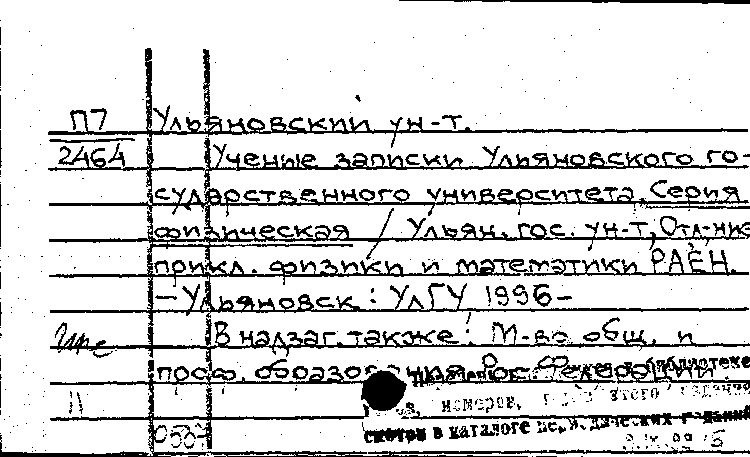 П7 Ульяновский ун-т.
2464 Ученые записки Ульяновского го-
сударственного университета. Серия
физическая / Ульян. гос. ун-т, Отд-ние
прикл. физики и математики РАЕН.
– Ульяновск : УлГУ, 1996–
В надзаг. также: М-во общ. и
проф. образования Рос. Федерации
11 номеров, этого издания
смотри в каталоге периодических изданий